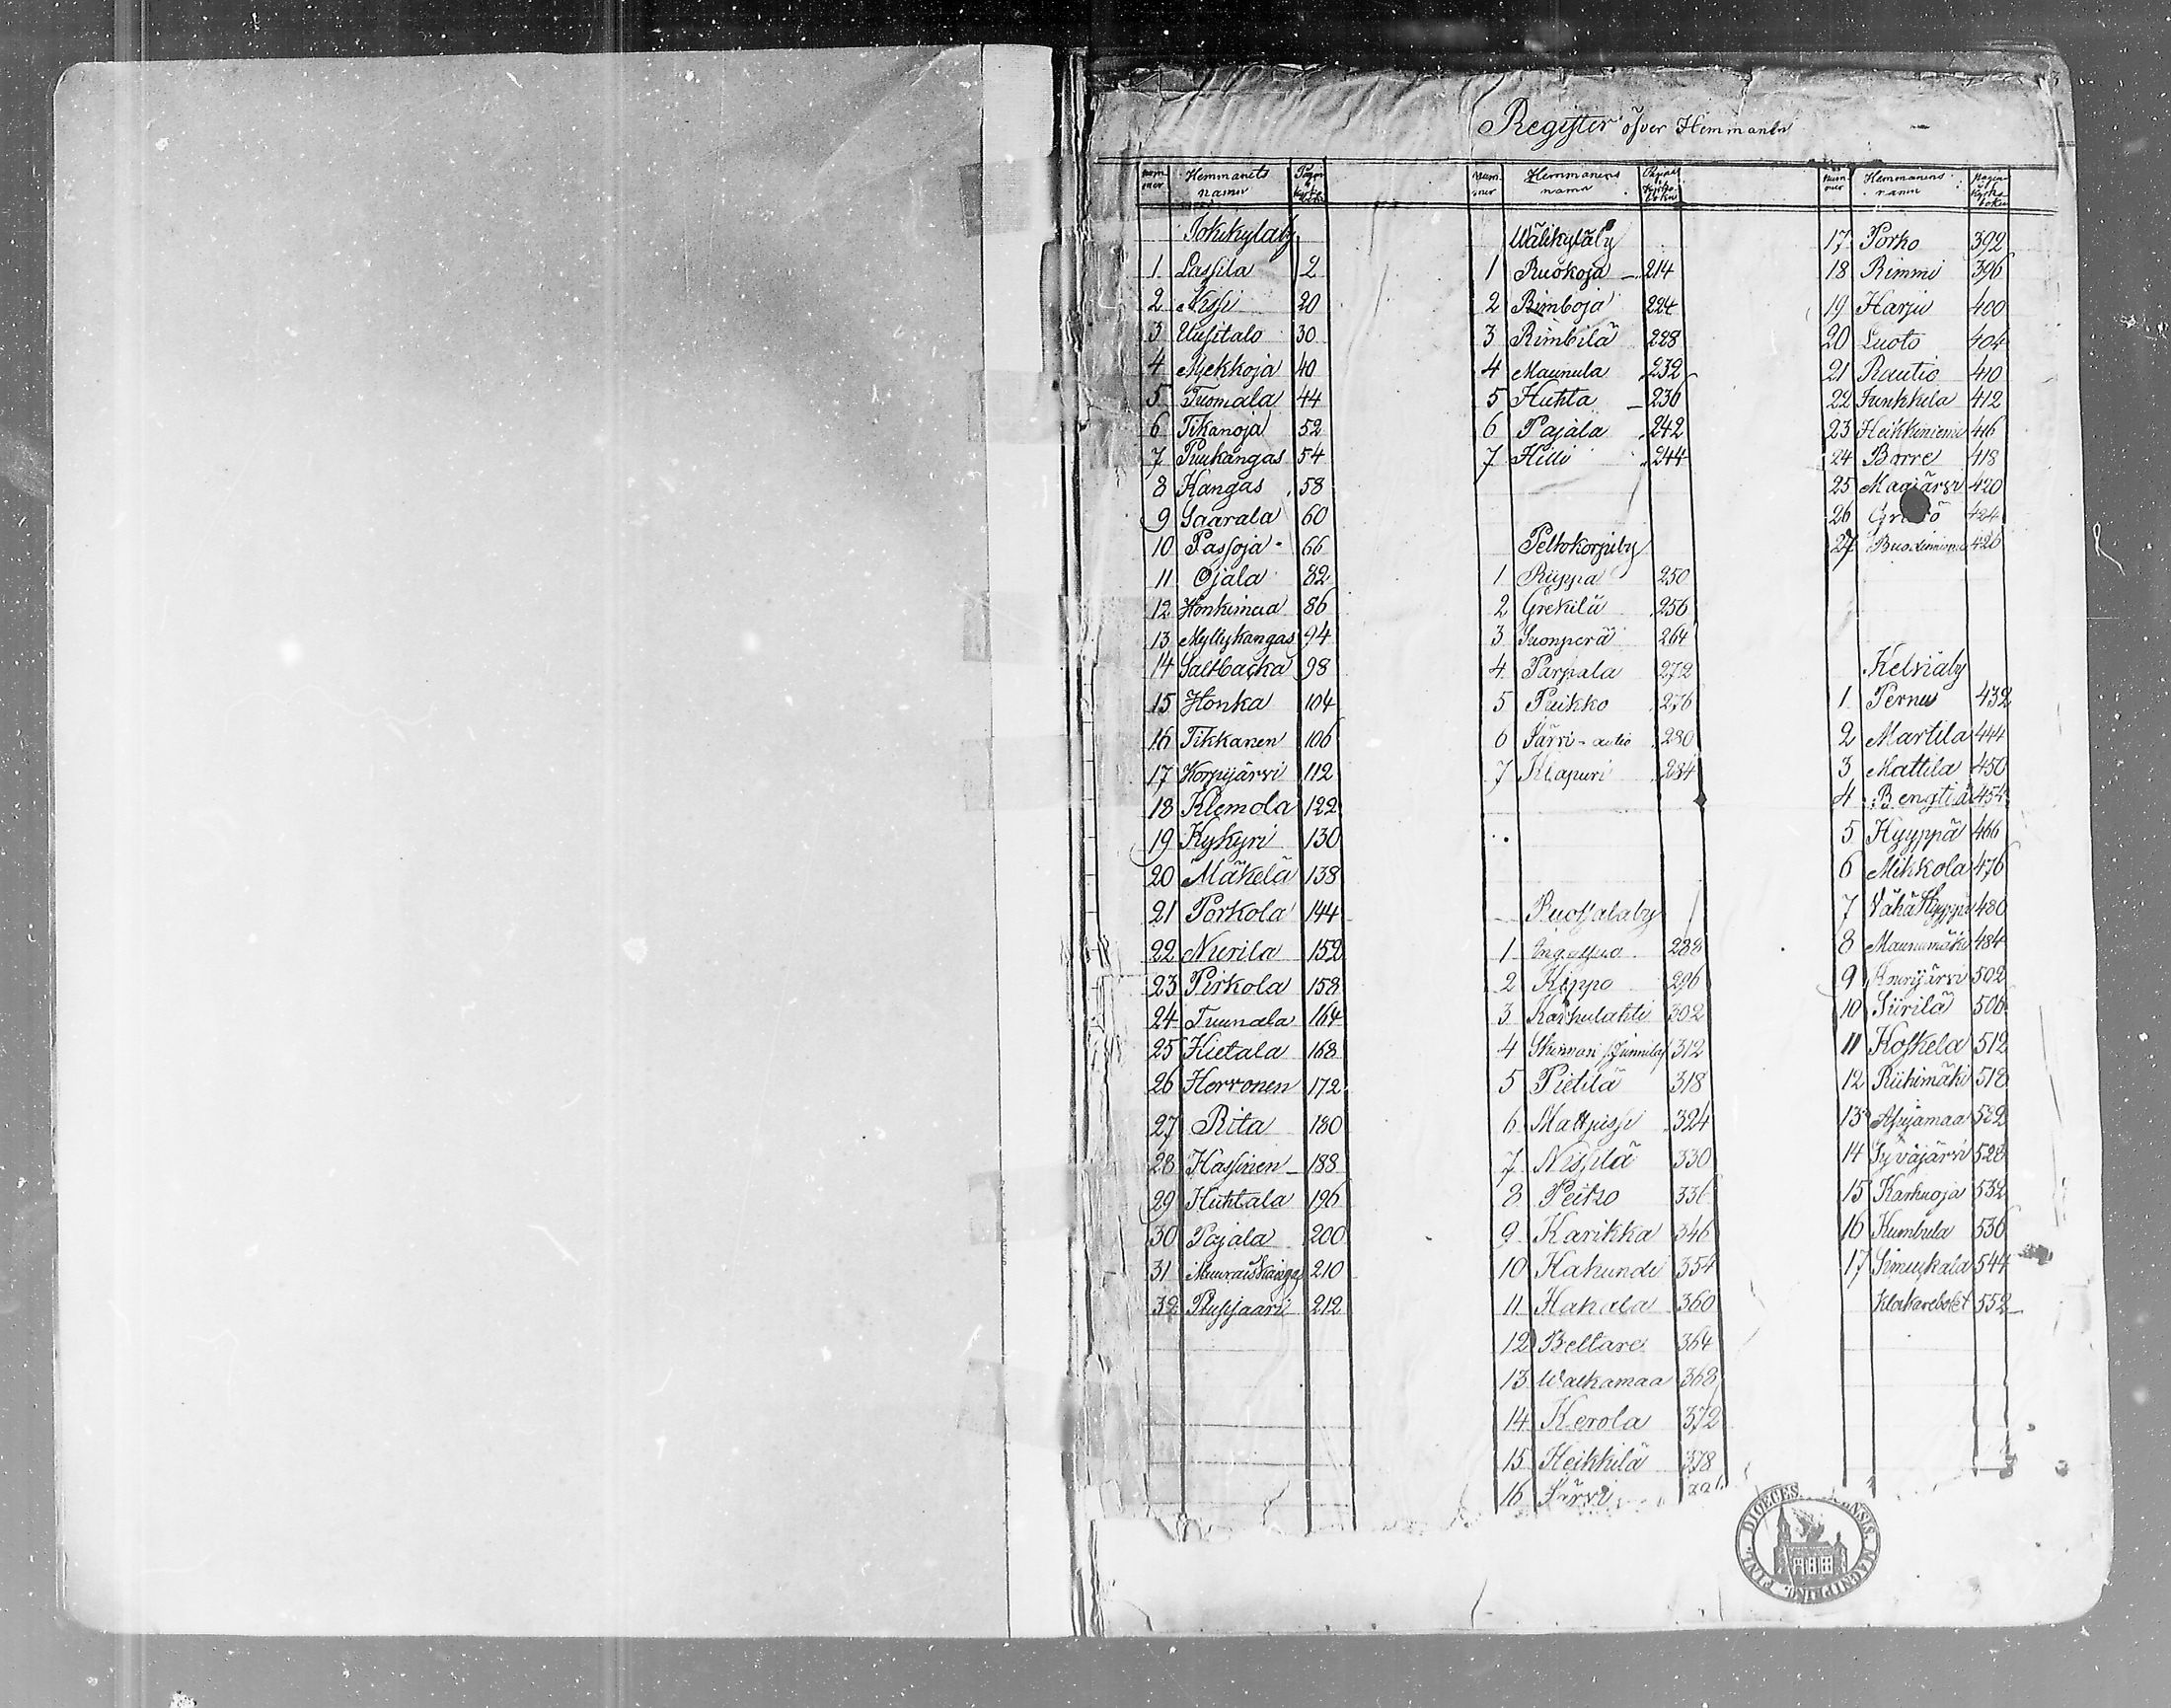 Register öfver Hemmanen
Num-
mer
Hemmanets
namn
Pagin
i
Kyrko
boken
Jokikylaby
1 Lassila 2
2 Kisi 20
3 Uusitalo 30
4 Njekkoja 40
5 Tuomala 44
6 Tikanoja 52
7 Puukangas 54
8 Kangas 58
9 Saarala 60
10 Passoja 66
11 Ojala 82
12 Honkimaa 86
13 Myllykangas 94
14 Saltbacka 98
15 Honka 104
16 Tikkanen 106
17 Korpijärvi 112
18 Klemola 122
19 Kykyri 130
20 Mäkelä 138
21 Porkola 144
22 Niurila 152
23 Pirkola 158
24 Tuunala 164
25 Hietala 168
26 Herronen 172
27 Rita 180
28 Hassinen 188
29 Huhtala 196
30 Pajala 200
31 Muuraiskangas 210
32 Pussijaari 212
Num-
mer
Hemmanens
namn
Wälikyläby
1 Ruokoja 214
2 Rimboja 224
3 Rimbilä 228
4 Maunula 232
5 Huhta 236
6 Pajala 242
7 Hilli 244
Peltokorpiby
1 Riippa 250
2 Grekilä 256
3 Suonperä 264
4 Parpala 272
5 Puikko 276
6 Järvi-autio 280
7 Klapuri 284
Ruotsalaby
1 288
2 Kippo 296
3 Karhulahti 302
4 Skinnari /Junnila/ 312
5 Pietilä 318
6 Mattjussi 324
7 Nissilä 330
8 Peitzo 336
9 Karikka 346
10 Kahundi 354
11 Hakala 360
12 Beltare 364
13 Walkamaa 368
14 Kerola 372
15 Heikkilä 378
16 Järvi
Num-
mer
Hemmanens
namn
Pagina
i
Kyrko
boken
17 Porko 392
18 Rimmi 396
19 Harju 400
20 Luoto 404
21 Rautio 410
22 Junkkila 412
23 Heikkiniemi 416
24 Borre 418
25 Maajärvi 420
26 424
27 426
Kelviåby
1 Pernu 432
2 Martila 444
3 Mattila 450
4 Bengtiä 454
5 Hyyppä 466
6 Mikkola 476
7 Vähä Hyyppä 480
8 Maunumäki 484
9 Knurijärvi 502
10 Siirilä 506
11 Koskela 512
12 Riihimäki 518
13 Ahjamaa 522
14 Syväjärvi 528
15 Karhuoja 532
16 Kumbula 536
17 Simukala 544
Klockarebolet 552
FINL. DIOECES. NSIS. MAGNI PRINC.